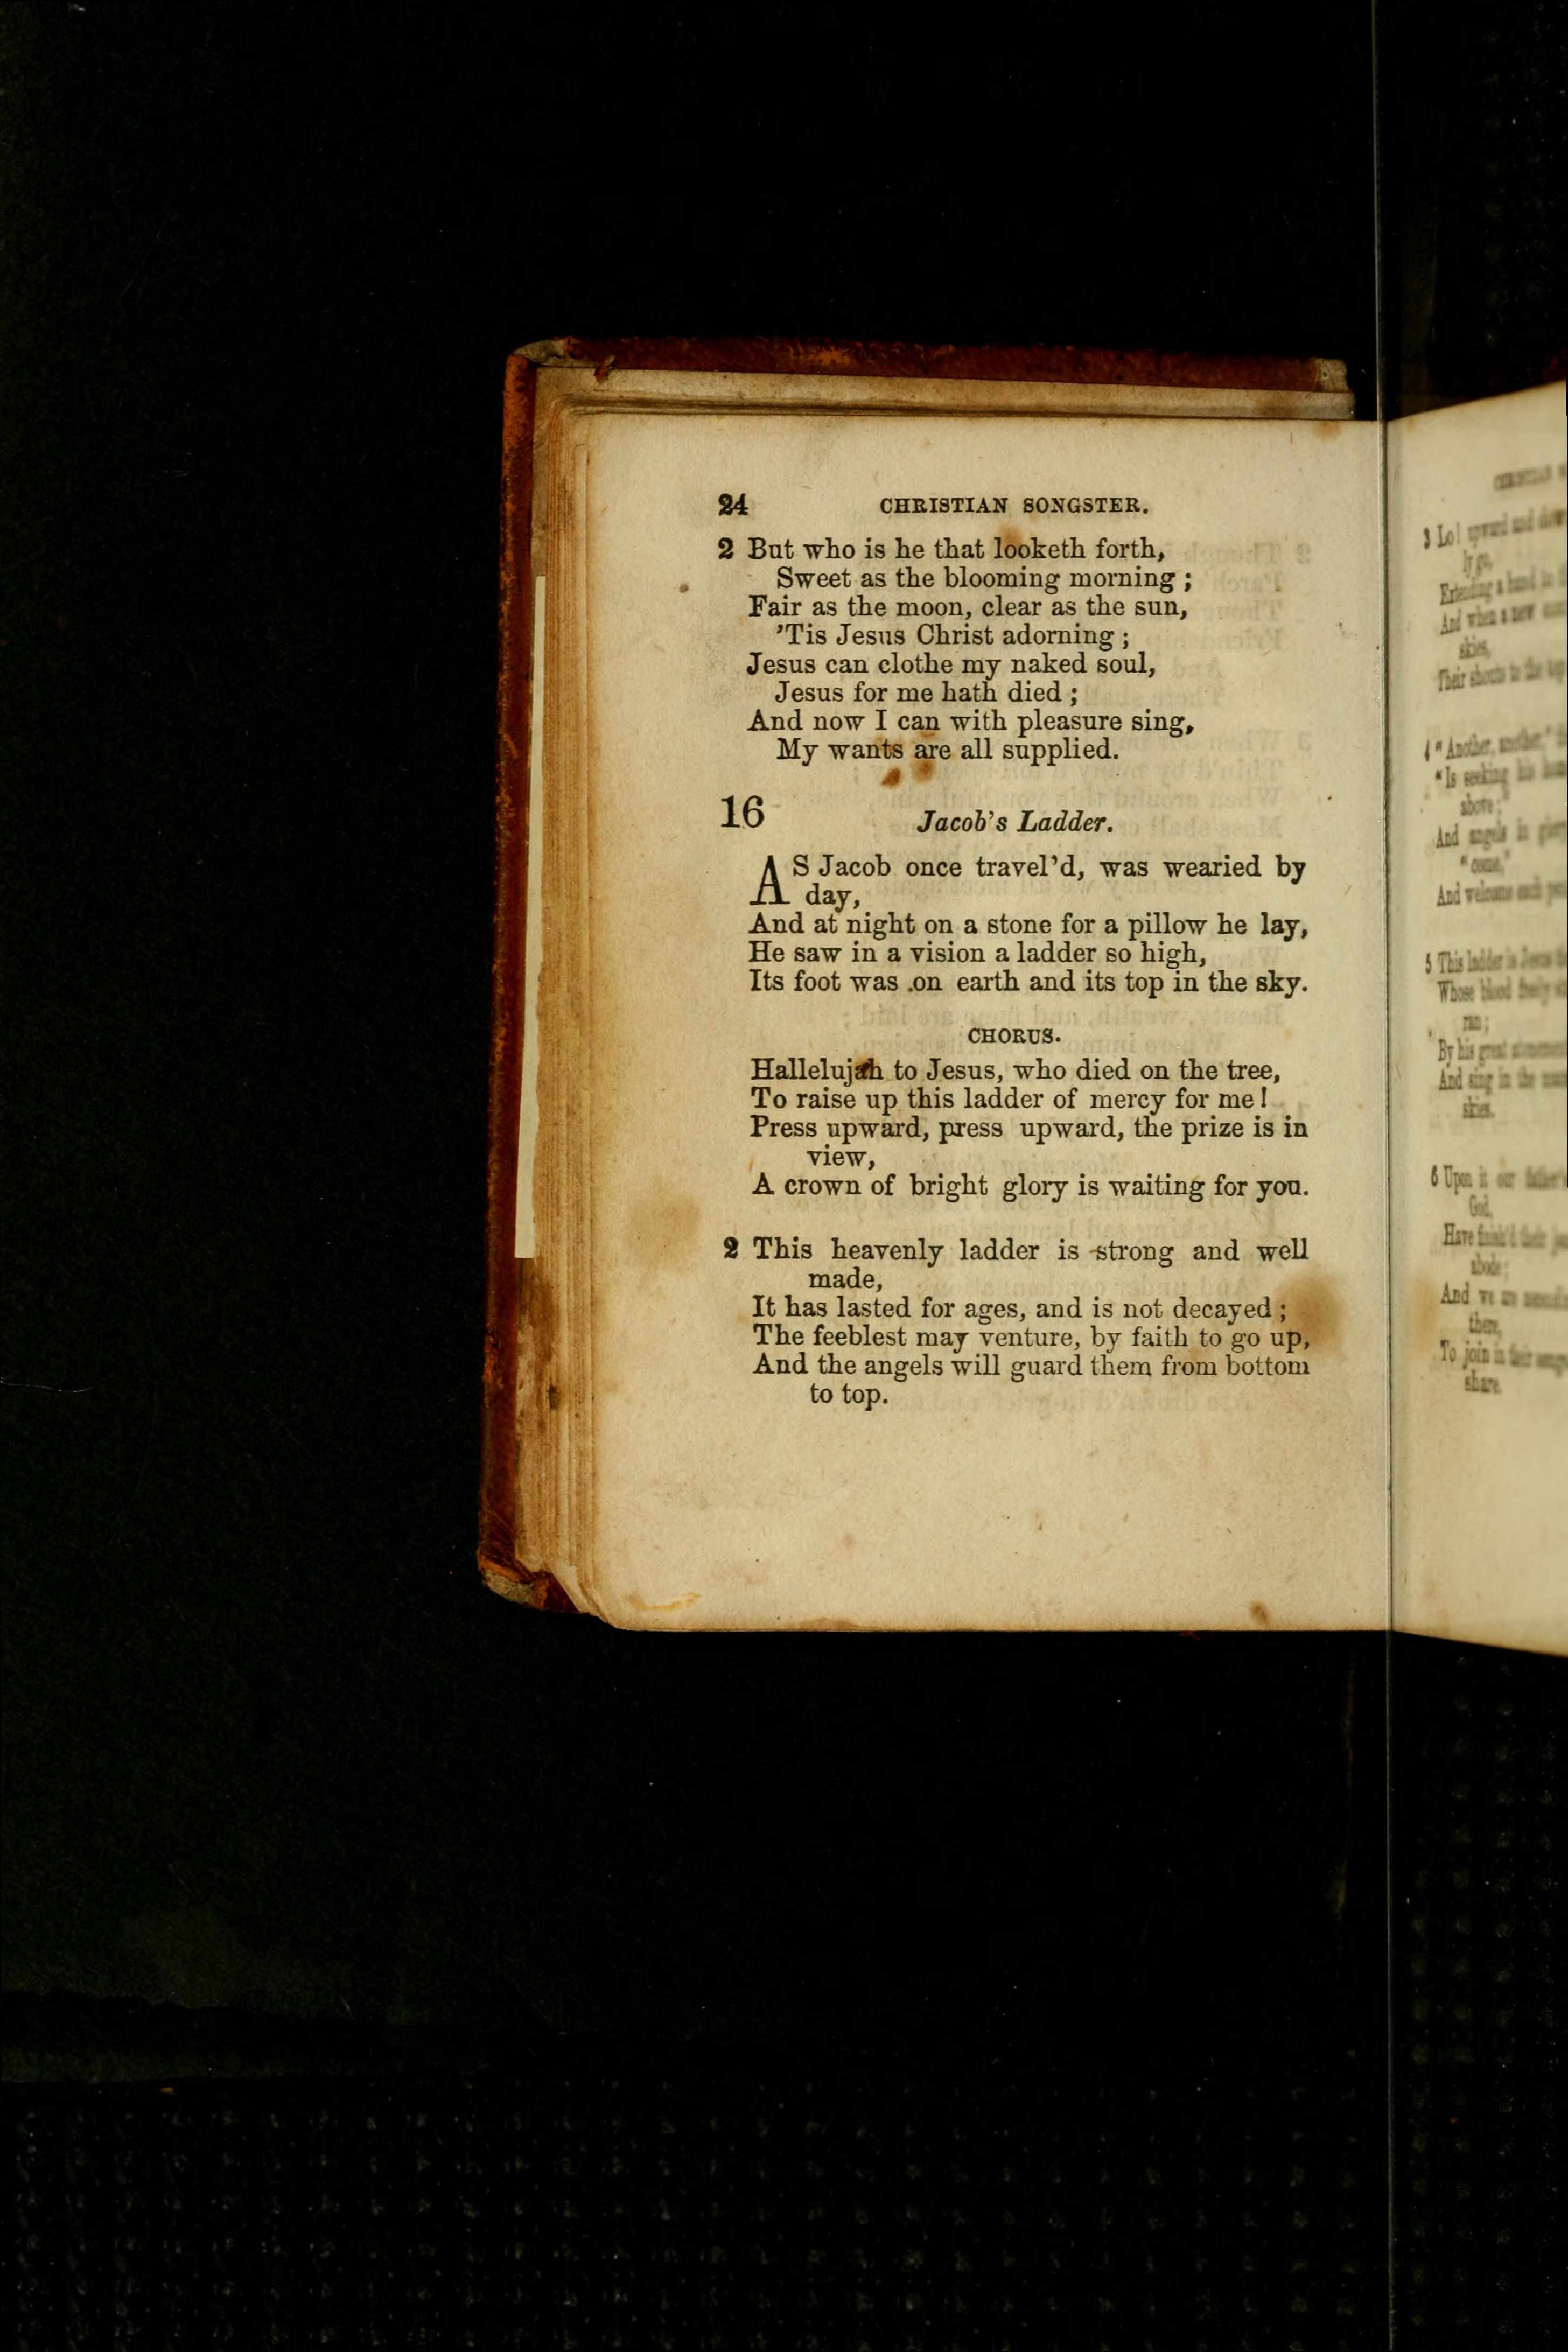 24 CHRISTIAN SONGSTER.
2 But who is he that looketh forth,
Sweet as the blooming morning ;
Fair as the moon, clear as the sun,
'Tis Jesus Christ adorning ;
Jesus can clothe my naked soul,
Jesus for me hath died ;
And now I can with pleasure sing,
My wants are all supplied.
16 Jacob's Ladder.
AS Jacob once travel'd, was wearied by
day,
And at night on a stone for a pillow he lay,
He saw in a vision a ladder so high,
Its foot was .on earth and its top in the sky.
CHORUS.
Hallelujah to Jesus, who died on the tree,
To raise up this ladder of mercy for me !
Press upward, press upward, the prize is in
view,
A crown of bright glory is waiting for you.
2 This heavenly ladder is strong and well
made,
It has lasted for ages, and is not decayed ;
The feeblest may venture, by faith to go up,
And the angels will guard them from bottom
to top.
3 Lo! upward and
And when a new
Their shouts to the
4 "Another,
"Is seeking
above;
And angels in
And welcome
5 This ladder is Jesus
Whose blood
ran;
By his great
And sing in the
skies.
6 Upon it our
God,
Have
abode;
And we
then,
To join in
share.